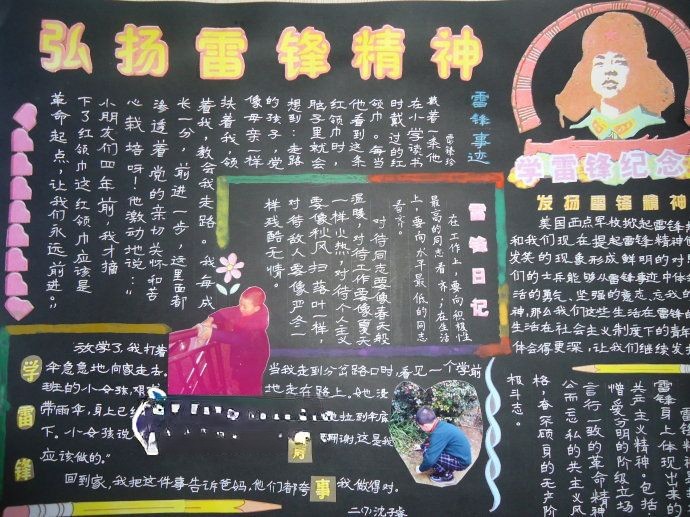 弘扬雷锋精神
雷锋事迹
戴着一条他
在小学读书
时戴过的红
领巾。每当
他看到这条
红领巾时，
脑子里就会
想到：走路
的孩子，党
像母亲一样
扶着我，领
着我，教会我走路。我每成
长一分，前进一步，这里面都
渗透着党的亲切关怀和苦
心栽培呀！他激动地说：
小朋友们四年前，我才摘
下了红领巾这红领巾应该是
革命起点，让我们永远前进。
雷锋日记
在工作上，要向积极性
最高的同志看齐；在生活
上，要向水平最低的同志
看齐。
对待同志要像春天般
温暖，对待工作要像夏天
一样火热，对待个人主义
要像秋风扫落叶一样，
对待敌人要像严冬一
样残酷无情。
学雷锋纪念
发扬雷锋精神
美国西点军校掀起雷锋
和我们现在提起雷锋精神
发笑的现象形成鲜明的对
们的士兵能够从雷锋事迹中体
活的勇气、坚强的意志、忘我的
神，那么我们这些生活在雷锋
生活在社会主义制度下的青年
体会得更深，让我们继续发
雷锋精神
雷锋身上体现出来的
共产主义精神。包括
憎爱分明的阶级立场
言行一致的革命精神
公而忘私的共主义风
格，奋不顾身的无产阶
级斗志。
学雷锋
放学了，我打着
伞急急地向家走去。
当我走到分岔路口时，看见一个学前
班的小女孩，
地走在路上。她没
带雨伞，身上已
下。小女孩说
谢谢，这是我
应该做的。”
回到家，我把这件事告诉爸妈，他们都夸我做得对。
事
二(7)沈子